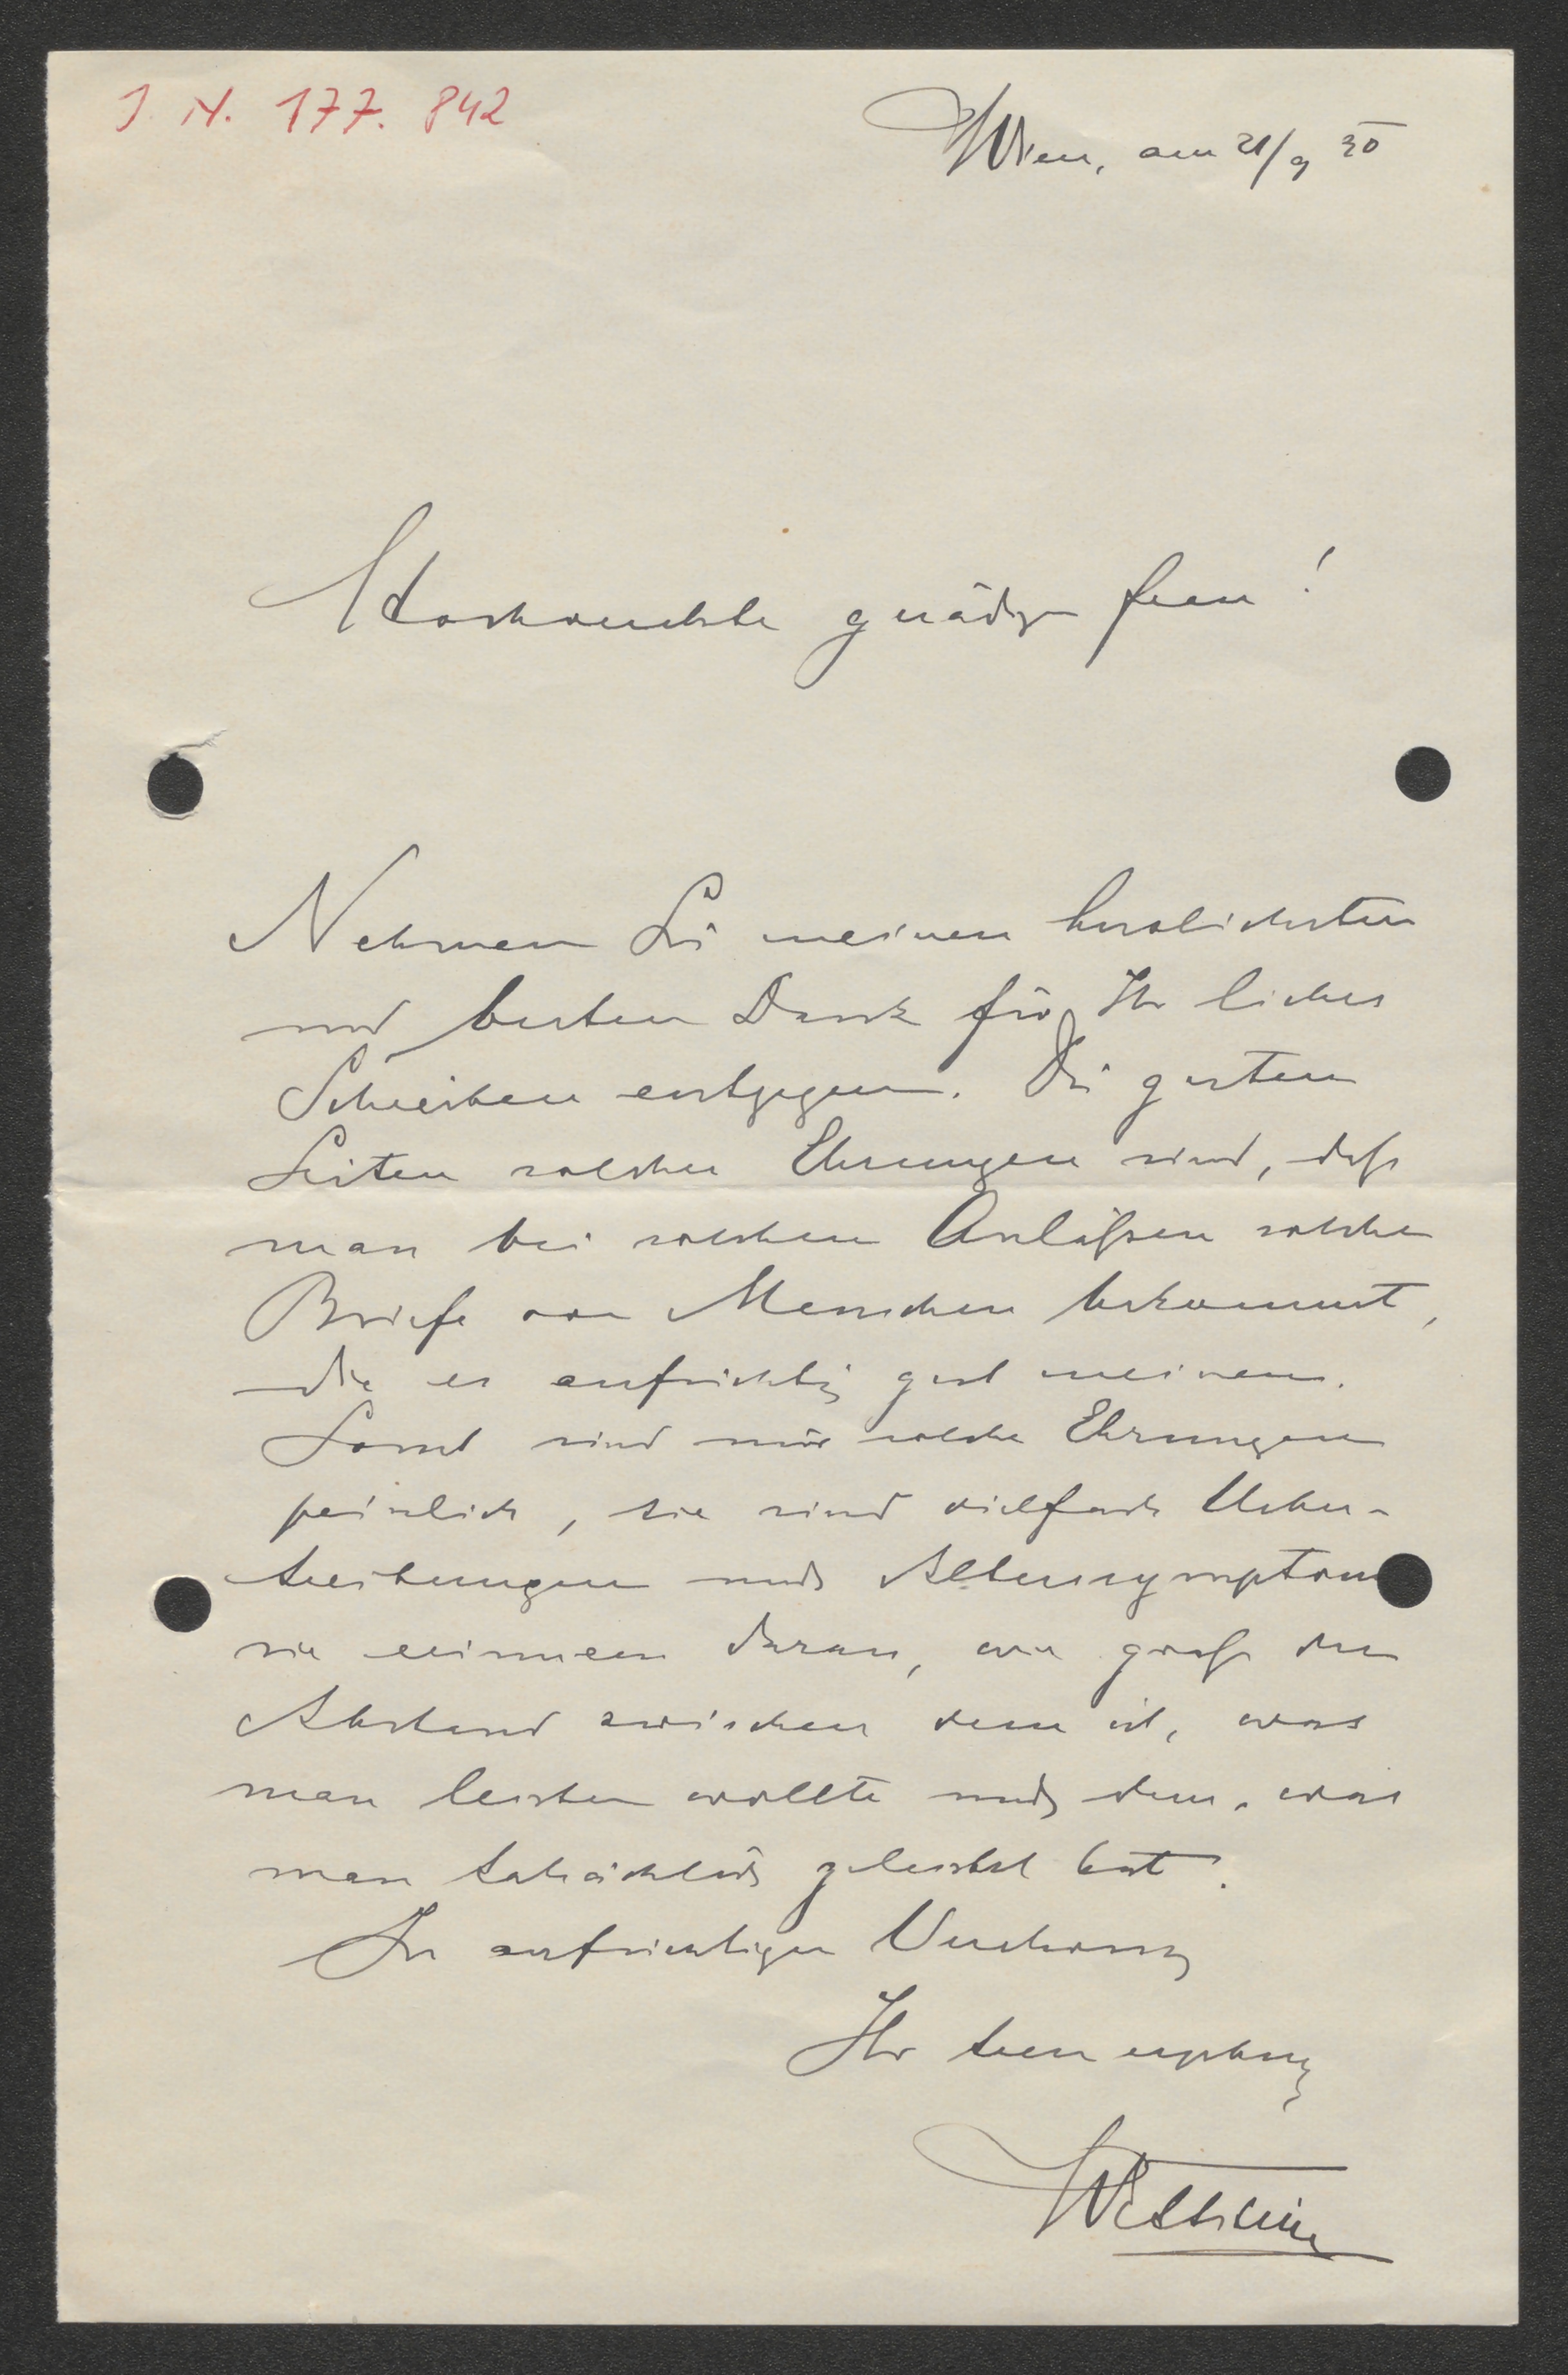 J. N. 177.842
Wien, am 21/9 30
Hochverehrte gnädige Frau!
Nehmen Sie meinen herzlichsten
und besten Dank für Ihr liebes
Schreiben entgegen. Die guten
Seiten solcher Ehrungen sind, daß
man bei solchen Anläßen solche
Briefe von Menschen bekommt,
die es aufrichtig gut meinen.
Sonst sind mir solche Ehrungen
peinlich, sie sind vielfach Ueber-
treibungen und Alterssymptome
sie erinnern daran, wie groß der
Abstand zwischen dem ist, was
man leisten wollte und dem, was
man tatsächlich geleistet hat.
In aufrichtiger Verehrung
Ihr treu ergebener